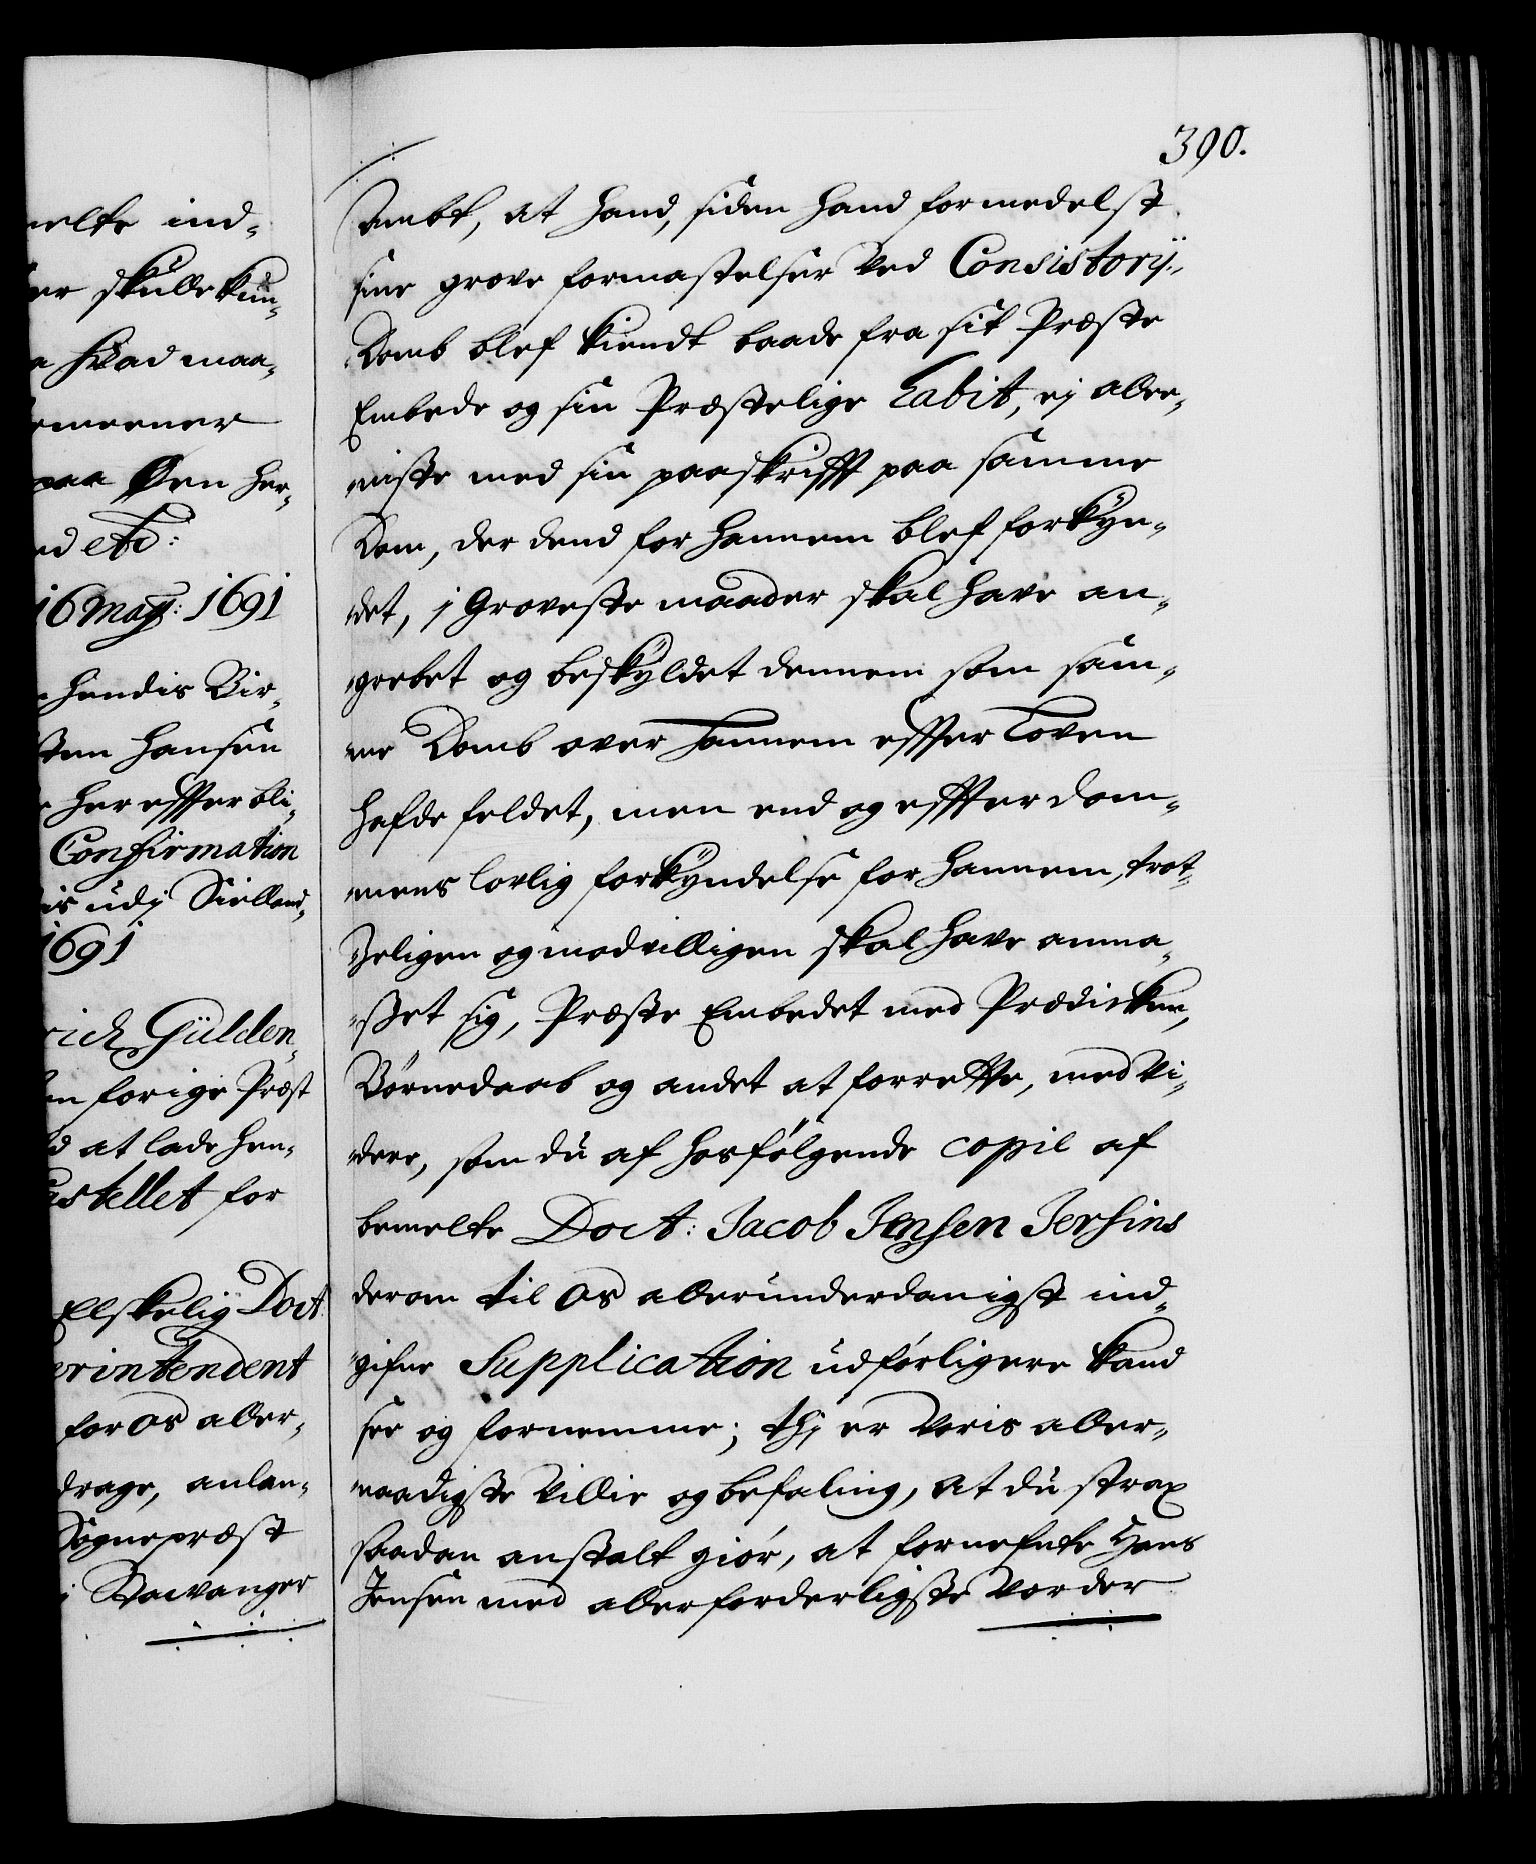 melte ind-
er skulle kun-
a hvad maa-
emeener
paa Øen Her-
ed etc:
16 Maÿ: 1691
hendis Bir-
sten Hansen
her effter bli-
Confirmation
is udj Siælland
1691
rich Gülden-
en forige Præst
d at lade hen-
Castellet for
Elskelig Doct
erintendent
for os aller-
drage, anlan-
Sognepræst
i Stawanger
390.
Ambt, at hand, siden hand formedelst
sine grove formastelser ved Consistorÿ-
Domb blef kiendt baade fra sit Præste
Embede og sin Præstelige habit, ej alle-
niste med sin paaskrifft paa samme
Dom, der dend for hannem blef forkÿn-
det, j Groveste maader skal have an-
grebet og beskÿldet dennem som sam-
me Domb over hannem effter Loven
hafde feldet, men end og effter dom-
mens lovlig forkÿndelse for hannem, trot-
zeligen og modvilligen skal have anma-
sset sig, Præste Embedet med Prædicken,
Børnedaab og andet at forrette, med Vi-
dere, som du af hosfølgende copie af
bemelte Doct: Jacob Jensen Jersins
derom til os allerunderdanigst ind-
gifne Supplication udførligere kand
see og fornemme; thj er Voris aller-
naadigste Villie og befaling, at du strax
saadan anstalt giør, at fornefnte Hans
Jensen med allerforderligste Vorder